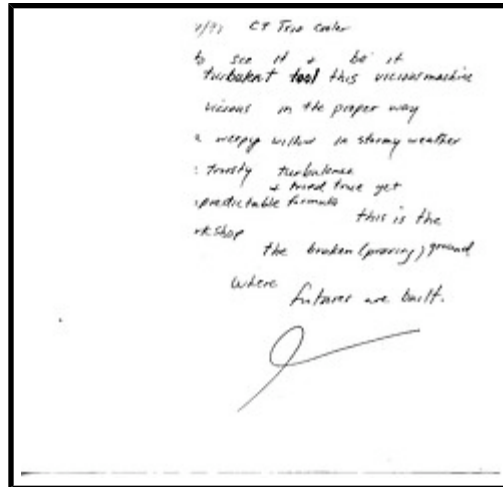 CT Trio
to see it + be it
turbulent tool this vicious machine
vicious in the proper way
a weepy willow in stormy weather
trusty turbulence
+ tried true yet
predictable formula
this is the
rkshop
the broken (proving) ground
where
futures are built.